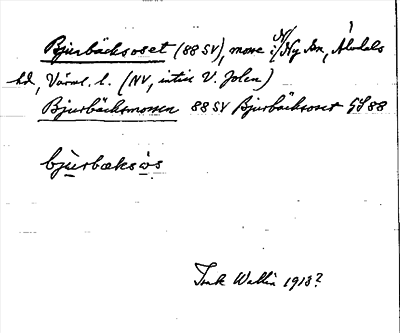 Bjurbäcksoset (88 SV), mosse i N/Ny sn, Älvdals
hd, Värml. l. (NV, intill V. Jolen)
Bjurbäcksmossen 88 SV Bjurbäcksoset GS 88
bjùrbæksòs
Wallin 1913?